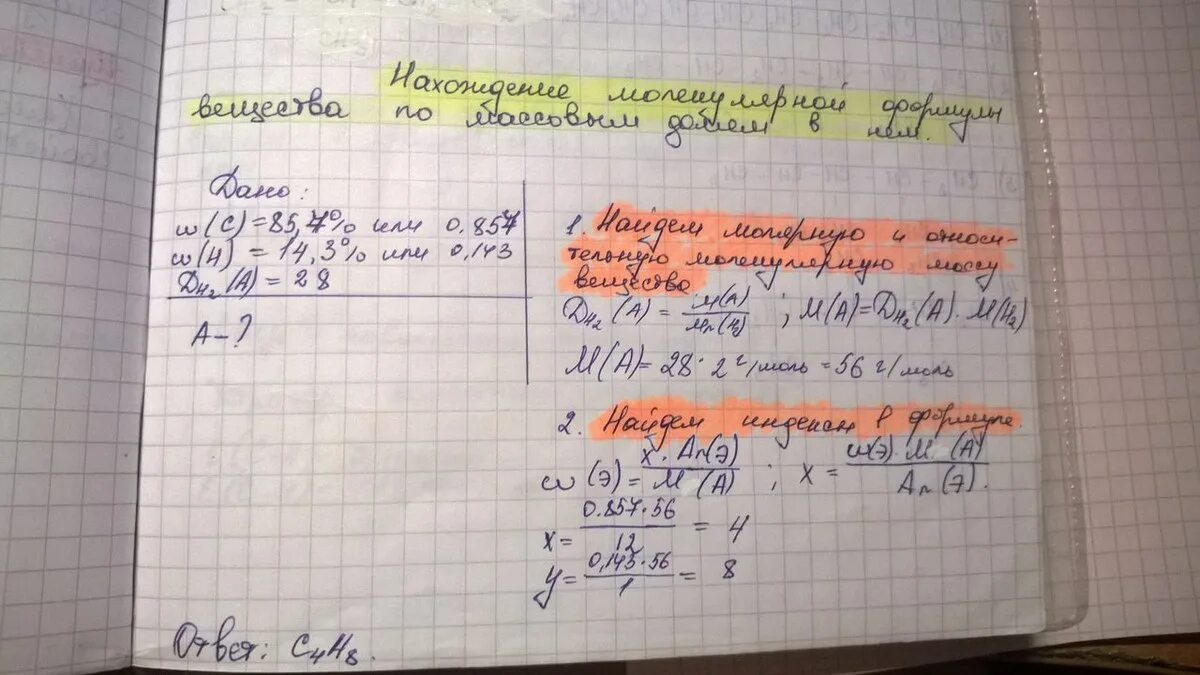 Нахождение молекулярной формулы
вещества по массовым долям в нем.
Дано:
w(C)=85,7% или 0,857
w(H) = 14,3% или 0,143
D_H₂(A) = 28
A-?
1. Найдем молярную и относи-
тельную молекулярную массу
вещества
D_H₂(A) = M(A)/Mr(H₂) ; M(A)=D_H₂(A)·M(H₂)
M(A)= 28·2 г/моль = 56 г/моль
2. Найдем индексы в формуле.
w(Э)= x·Ar(Э)/M(A) ; x = w(Э)·M(A)/Ar(Э).
x= 0.857·56/12 = 4
y= 0,143·56/1 = 8
Ответ: C₄H₈.